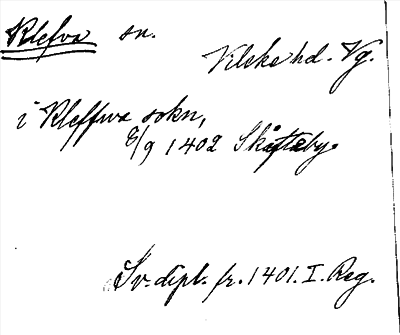 Klefva sn.
Vilske hd. Vg.
i Kleffwa sokn,
8/9 1402 Skåftaby.
Sv. dipl. fr. 1401. I. Reg.